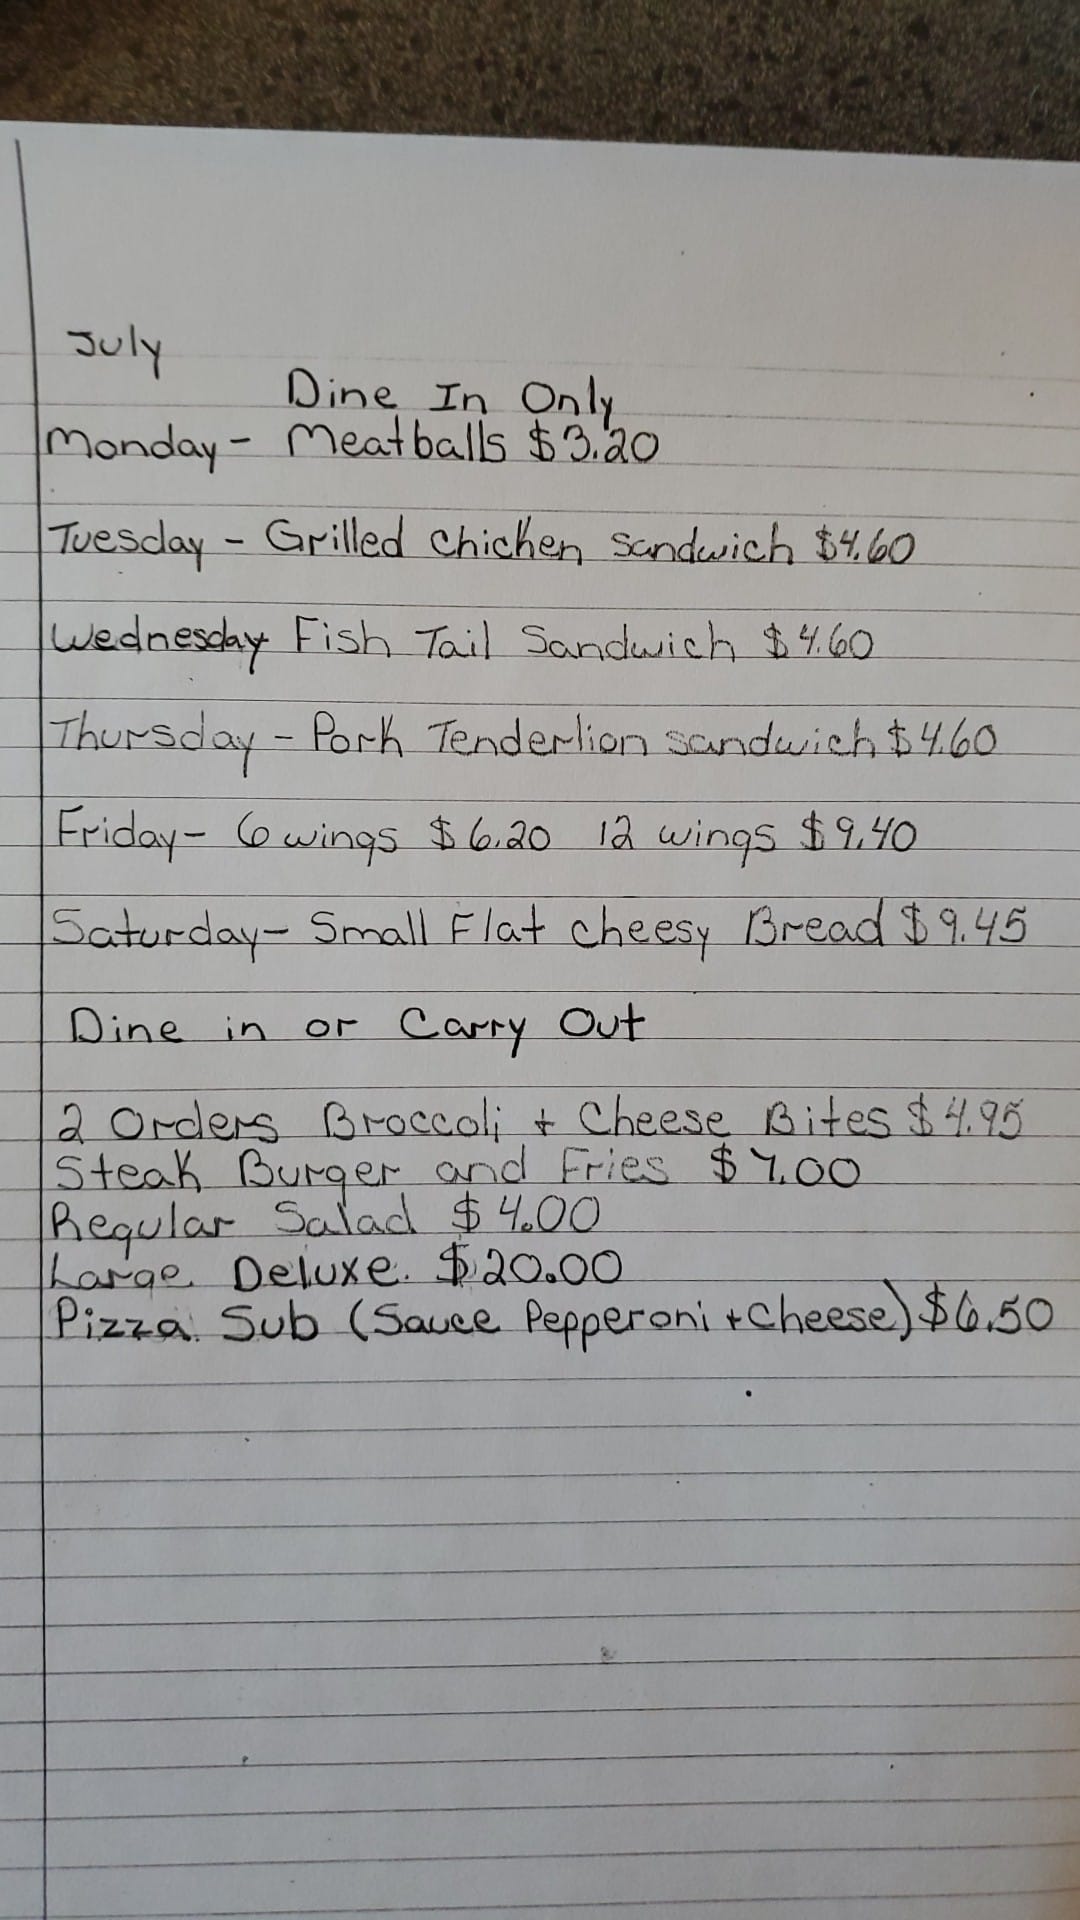 July
Dine In Only
Monday - Meatballs $3.20
Tuesday - Grilled Chicken Sandwich $4.60
Wednesday Fish Tail Sandwich $4.60
Thursday - Pork Tenderlion sandwich $4.60
Friday - 6 wings $6.20 12 wings $9.40
Saturday - Small Flat Cheesy Bread $9.45
Dine in or Carry Out
2 Orders Broccoli + Cheese Bites $4.95
Steak Burger and Fries $7.00
Regular Salad $4.00
Large Deluxe. $20.00
Pizza Sub (Sauce Pepperoni + Cheese) $6.50